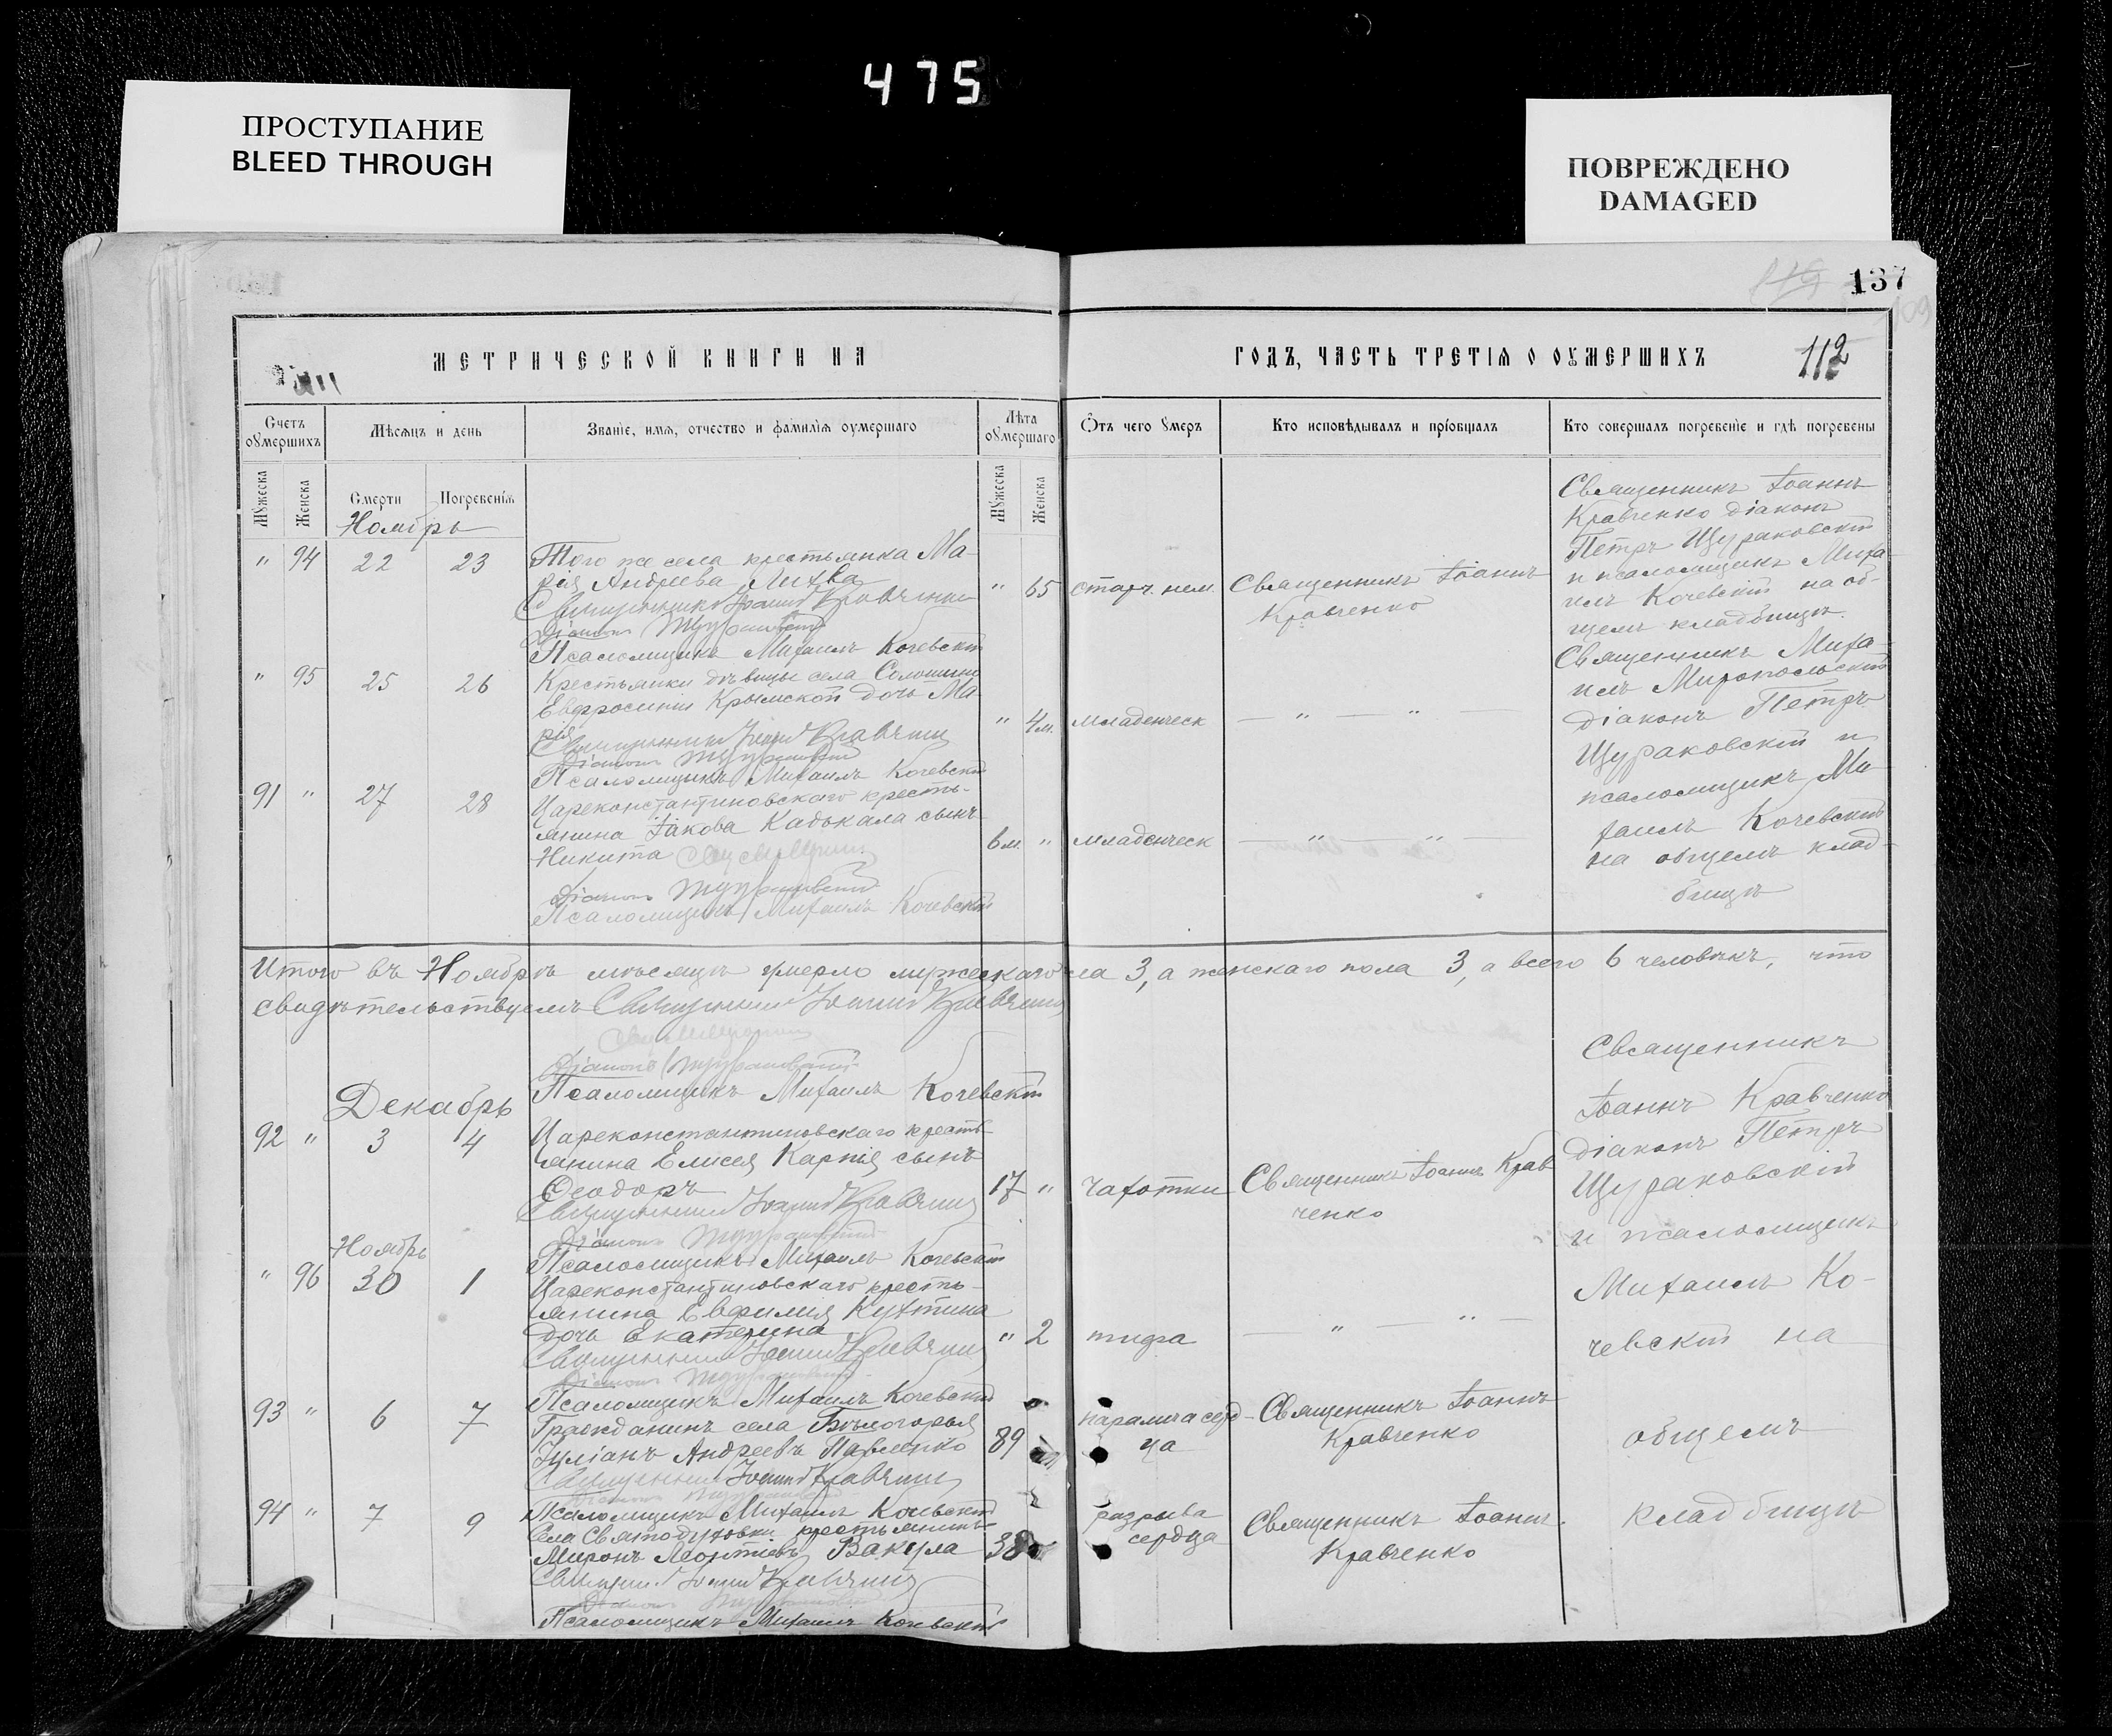 475
ПРОСТУПАНИЕ
BLEED THROUGH
ПОВРЕЖДЕНО
DAMAGED
137
109
МЕТРИЧЕСКОЙ КНИГИ НА
ГОДЪ, ЧАСТЬ ТРЕТІЯ О ОУМЕРШИХЪ
112
Счетъ оумершихъ
Мѣсяцъ и день
Званіе, имя, отчество и фамилія оумершаго
Лѣта оумершаго
Отъ чего умеръ
Кто исповѣдывалъ и пріобщалъ
Кто совершалъ погребеніе и гдѣ погребены
Мужеска
Женска
Смерти
Погребенія
Мужеска
Женска
Ноябрь
" 94 22 23 Того же села крестьянка Ма-
рія Андреева Лихва
" 65 старч. нем. Священникъ Іоаннъ
Кравченко
Священникъ Іоаннъ Кравченко
Діаконъ Щураковскій
Псаломщикъ Михаилъ Кочевскій
Священникъ Іоаннъ
Кравченко діаконъ
Петръ Щураковскій
и псаломщикъ Миха-
илъ Кочевскій на об-
щемъ кладбищѣ.
" 95 25 26 Крестьянки дѣвицы села Солошино
Евфросиніи Крымской дочь Ма
рія
" 4 м. младенческ — " — " —
Священникъ Іоаннъ Кравченко
Діаконъ Щураковскій
Псаломщикъ Михаилъ Кочевскій
Священникъ Миха-
илъ Миропольскій
діаконъ Петръ
Щураковскій и
псаломщикъ Ми
хаилъ Кочевскій
на общемъ клад-
бищѣ
91 " 27 28 Цареконстантиновскаго кресть-
янина Іакова Кадькала сынъ
Никита
6 м. " младенческ — " — " —
Діаконъ Щураковскій
Псаломщикъ Михаилъ Кочевскій
Итого въ Ноябрѣ мѣсяцѣ умерло мужескаго пола 3, а женскаго пола 3, а всего 6 человѣкъ, что
свидѣтельствуемъ Священникъ Іоаннъ Кравченко
Діаконъ Щураковскій
Псаломщикъ Михаилъ Кочевскій
Декабрь
92 " 3 4 Цареконстантиновскаго кресть-
янина Елисея Карпія сынъ
Ѳеодоръ
17 " чахотки Священникъ Іоаннъ Крав
ченко
Священникъ Іоаннъ Кравченко
Діаконъ Щураковскій
Псаломщикъ Михаилъ Кочевскій
Священникъ
Іоаннъ Кравченко
діаконъ Петръ
Щураковскій
и псаломщикъ
Михаилъ Ко-
чевскій на
общемъ
кладбищѣ
Ноябрь
" 96 30 1 Цареконстантиновскаго кресть-
янина Евфимія Кухтина
дочь Екатерина
" 2 тифа — " — " —
Священникъ Іоаннъ Кравченко
Діаконъ Щураковскій
Псаломщикъ Михаилъ Кочевскій
93 " 6 7 Гражданинъ села Бѣлогорья
Іуліанъ Андреевъ Павленко
89 паралича серд-
ца
Священникъ Іоаннъ
Кравченко
Священникъ Іоаннъ Кравченко
Псаломщикъ Михаилъ Кочевскій
94 " 7 9 Села Святодуховки крестьянинъ
Миронъ Леонтіевъ Вакула
38 разрыва
сердца
Священникъ Іоаннъ
Кравченко
Священникъ Іоаннъ Кравченко
Псаломщикъ Михаилъ Кочевскій